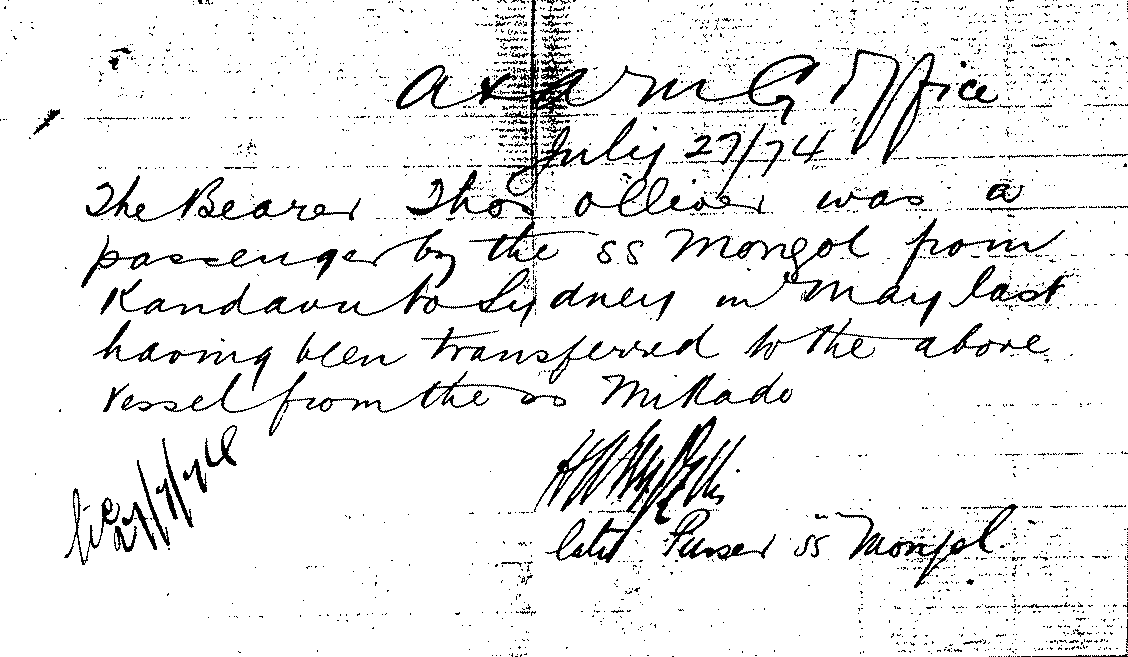 A & A M Cy Office
July 27/74
The Bearer Thos Olliver was a
passenger by the SS Mongol from
Kandavu to Sydney in May last
having been transferred to the above
vessel from the ss Mikado
27/7/74
late Purser SS Mongol